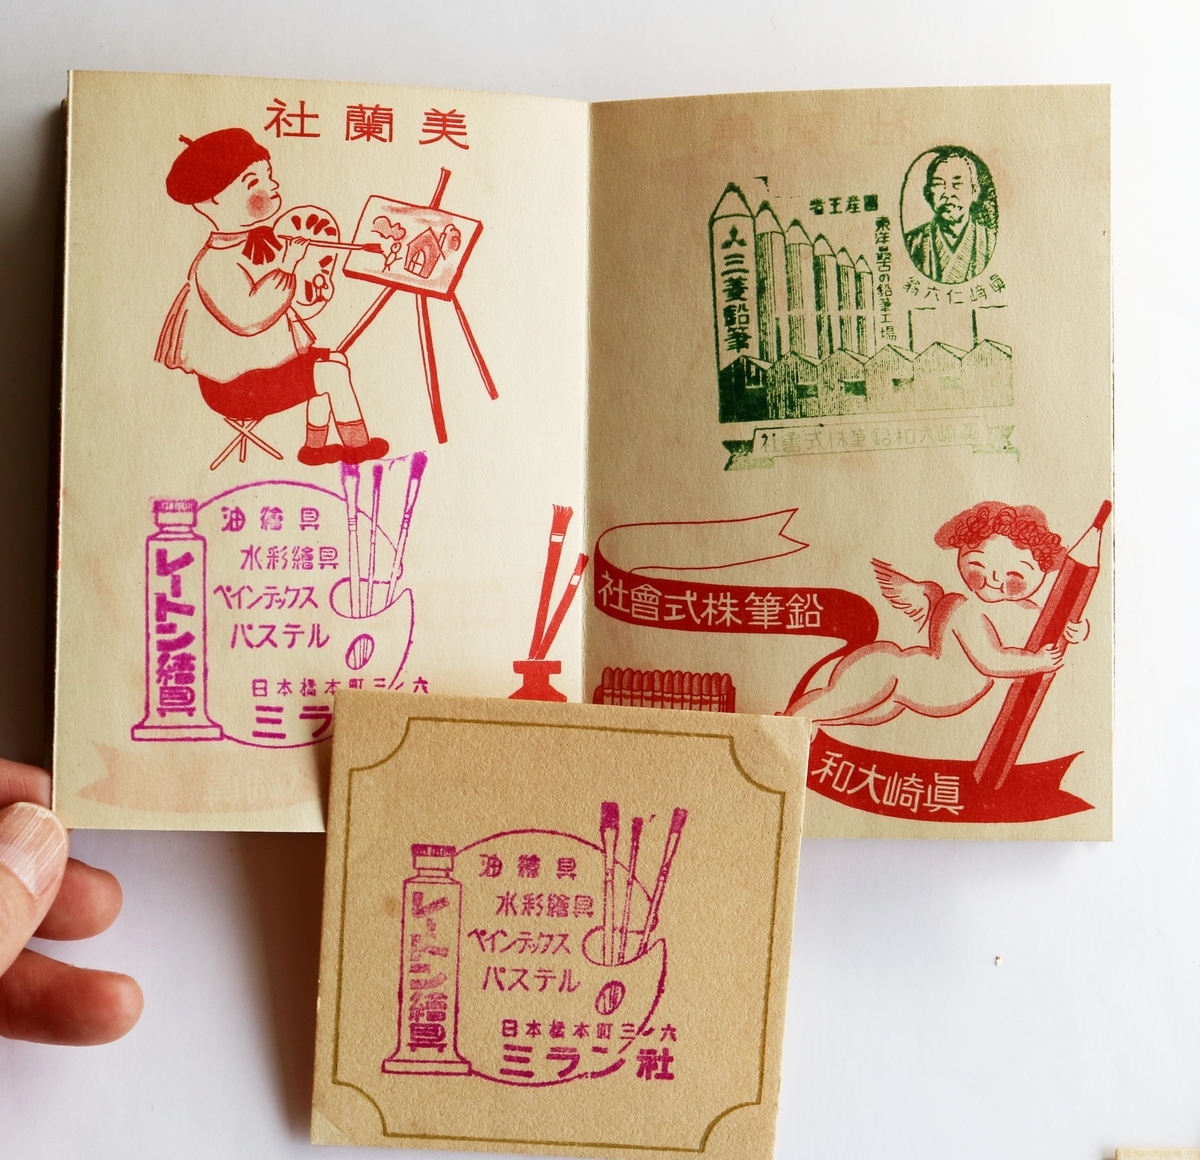 美蘭社
油繪具
水彩繪具
ペインテックス
パステル
レートン繪具
日本橋本町三ノ六
ミラ
國産王者
眞崎仁六翁
東洋最古の鉛筆工場
三菱鉛筆
眞崎大和鉛筆株式會社
眞崎大和
鉛筆株式會社
油繪具
水彩繪具
ペインテックス
パステル
レートン繪具
日本橋本町三ノ六
ミラン社